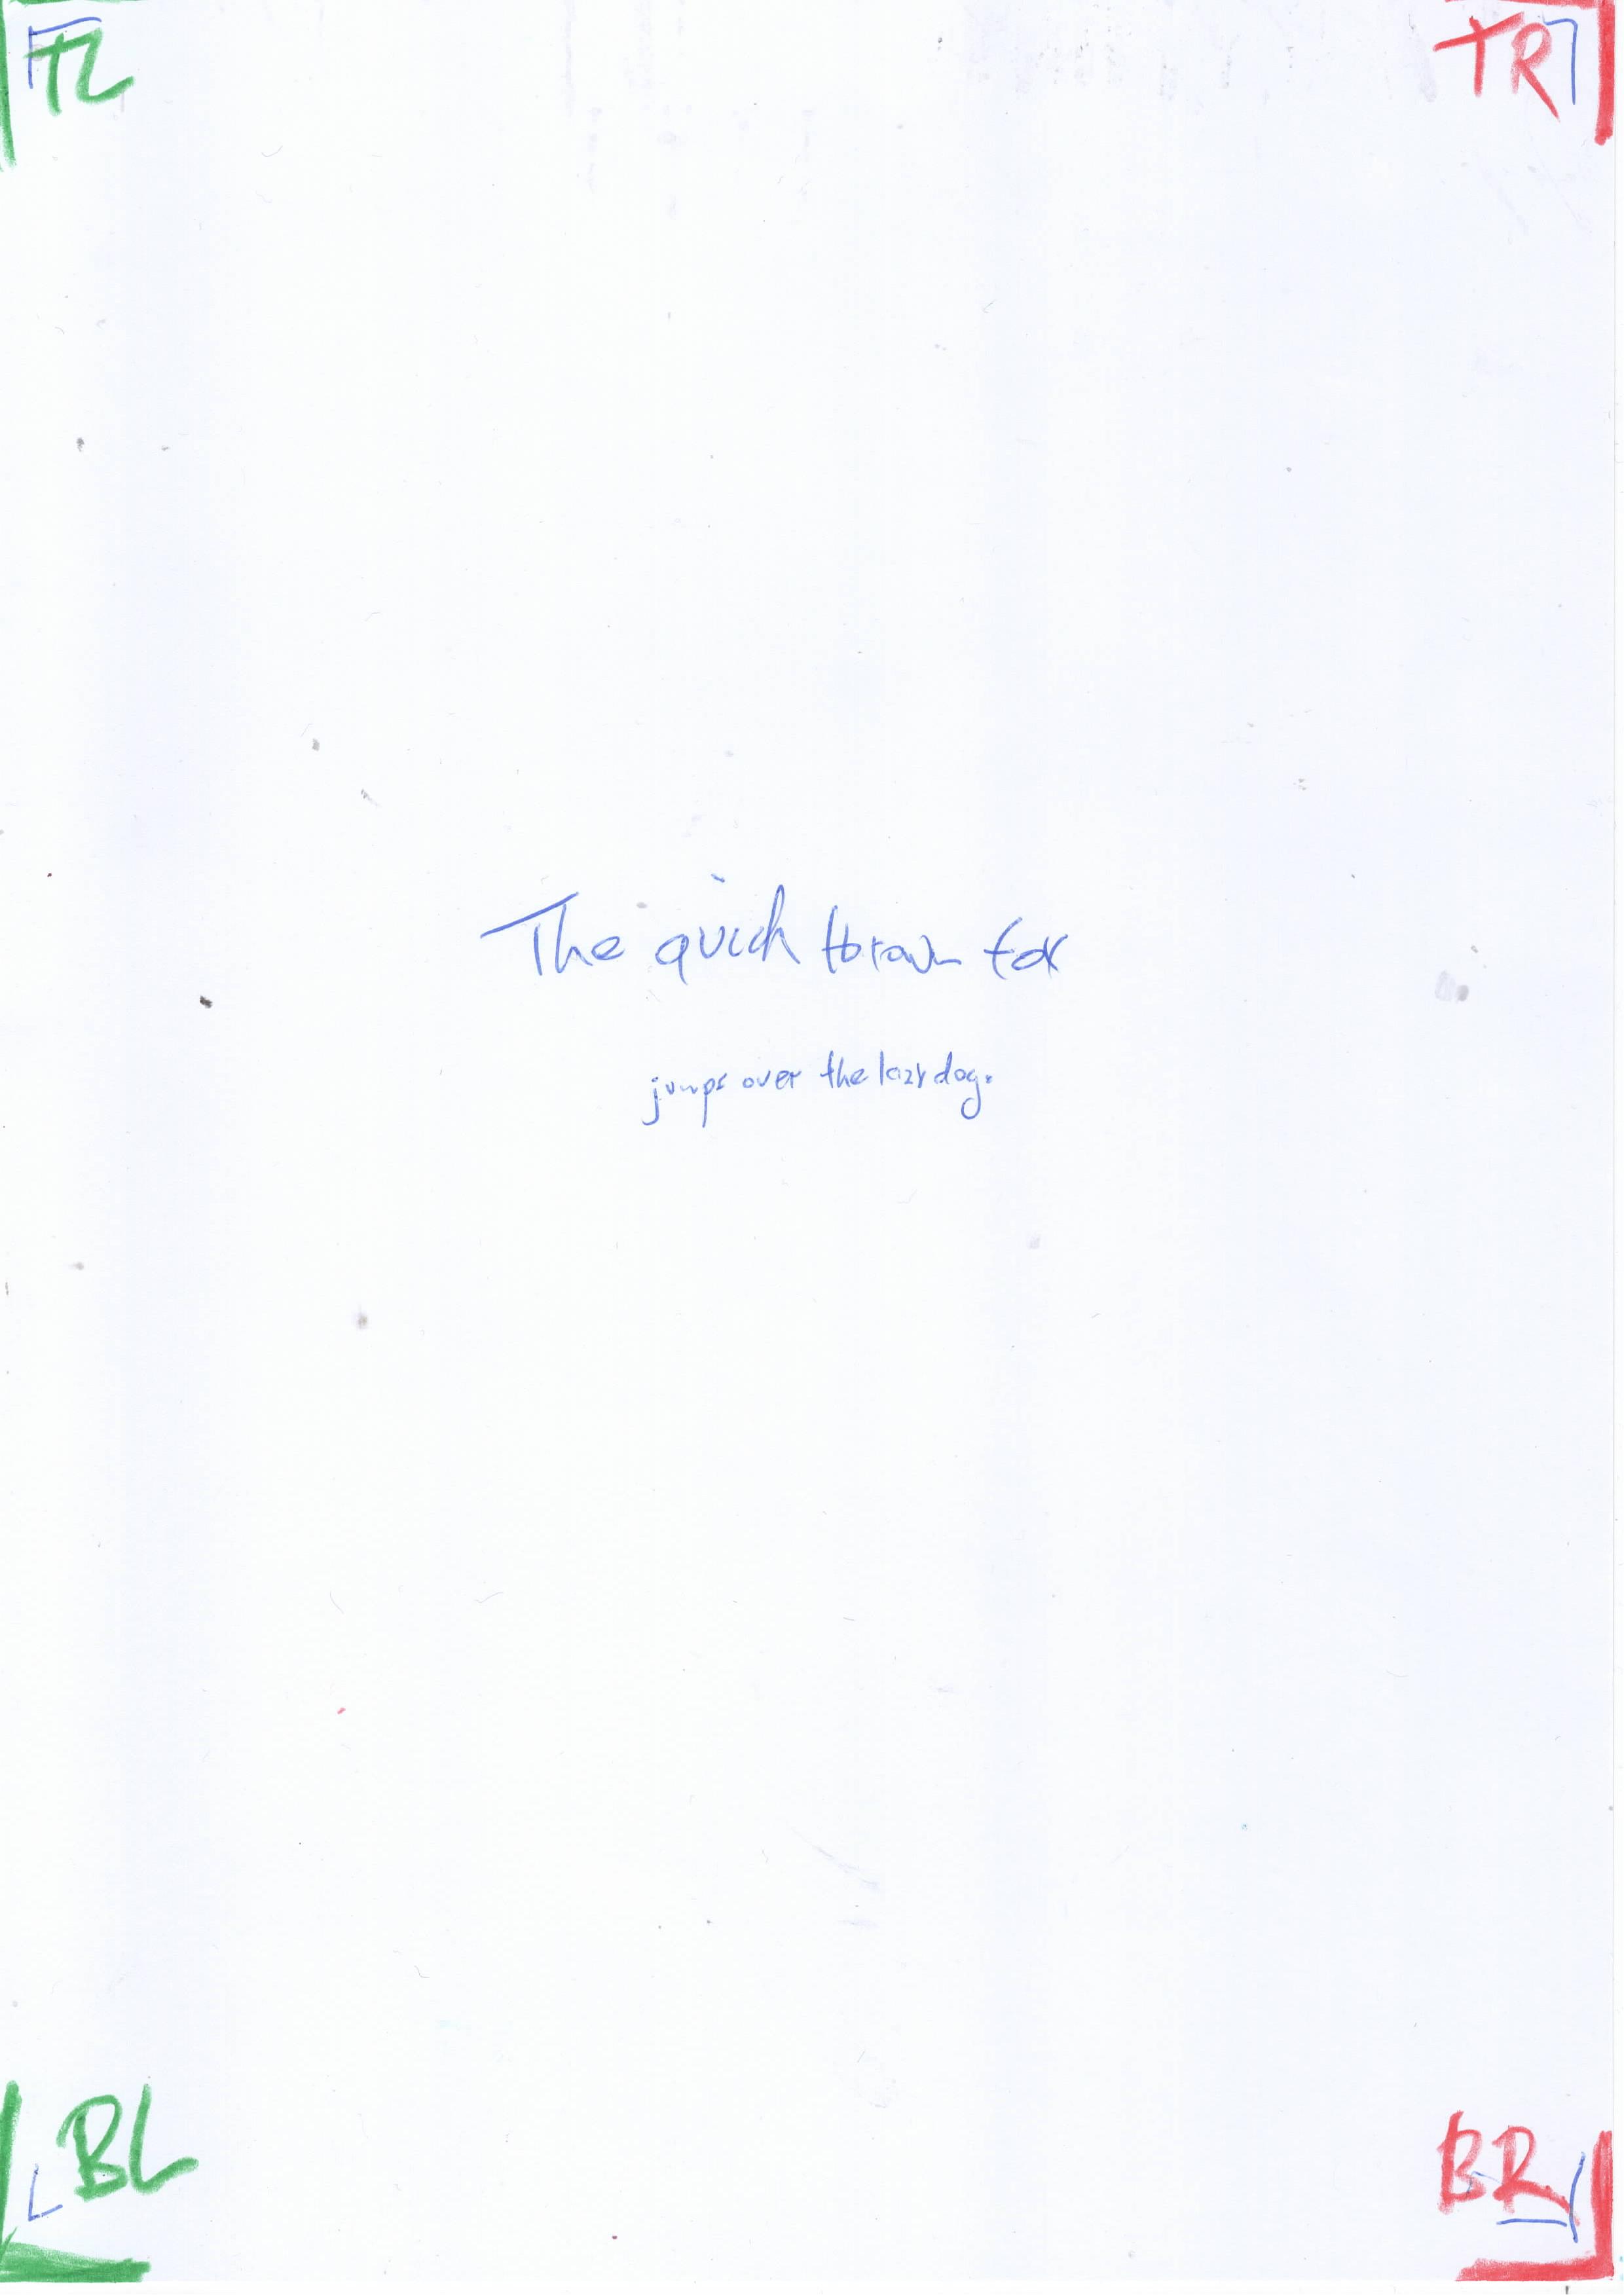 TL TR
The quick brown fox
jumps over the lazy dog.
BL BR